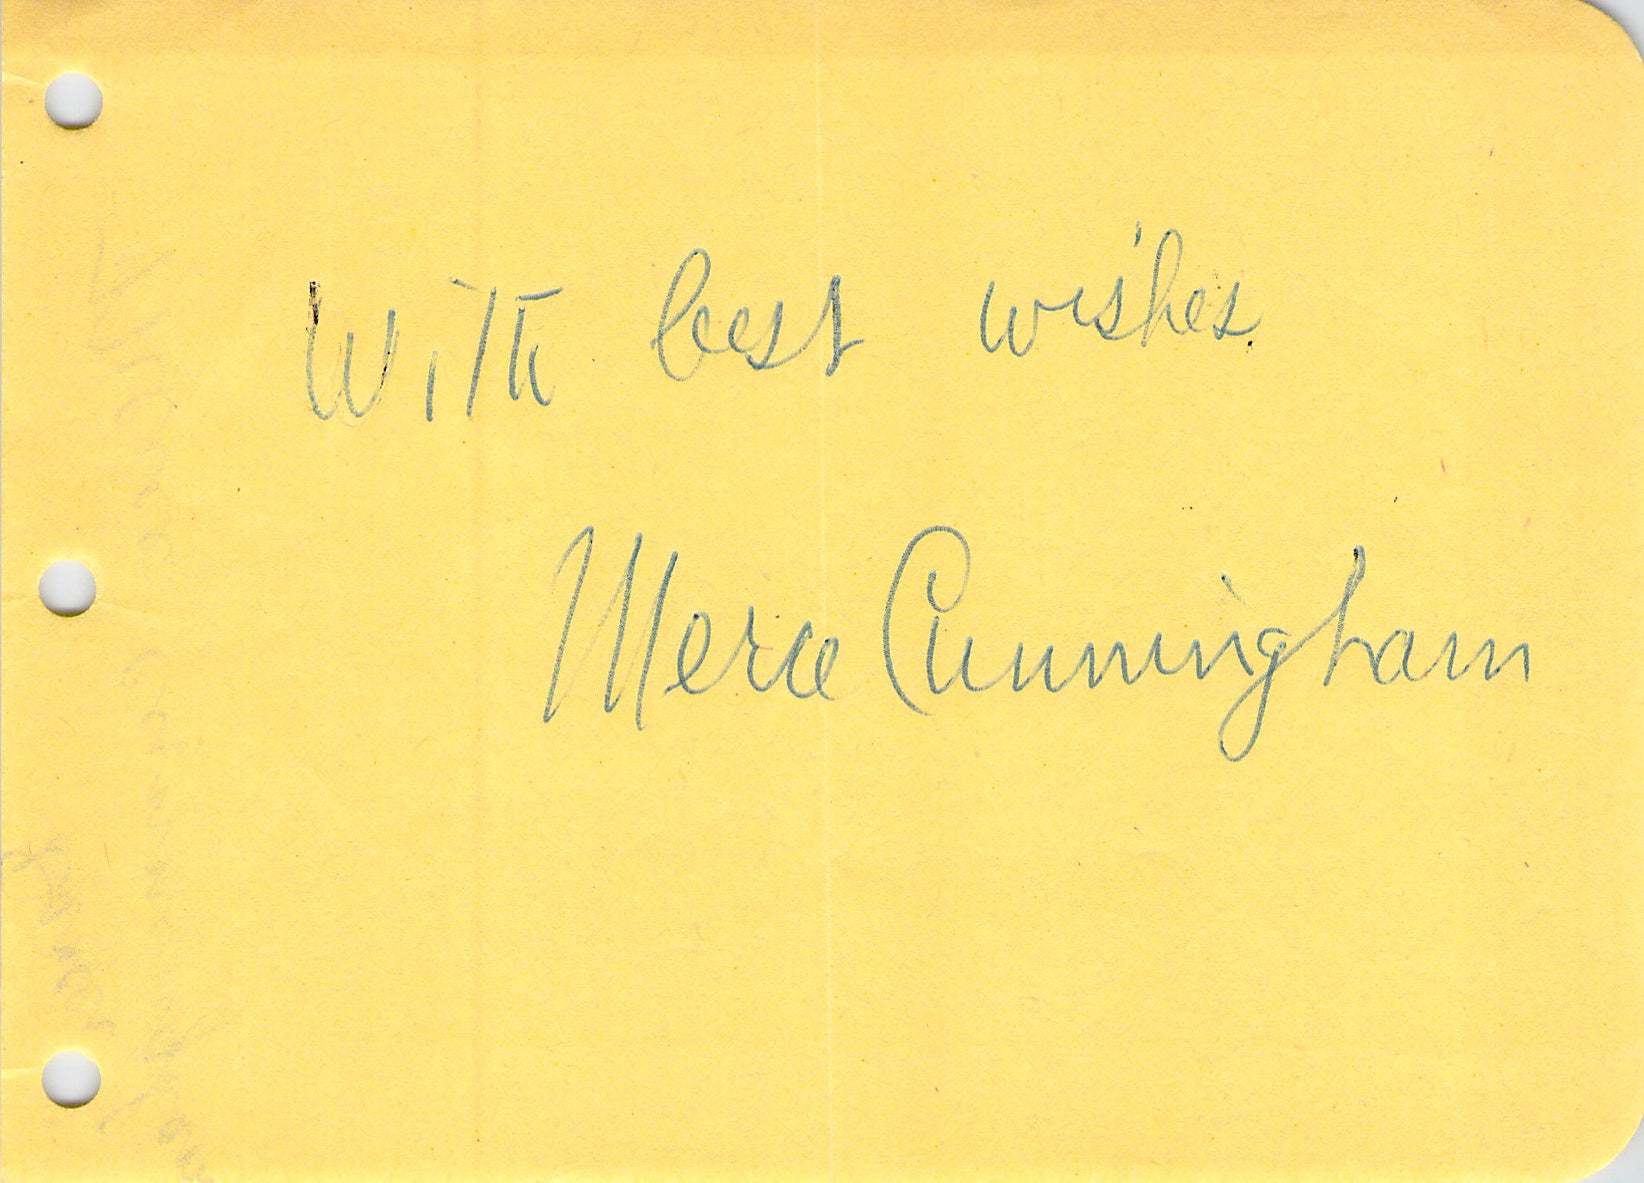 With best wishes.
Merce Cunningham